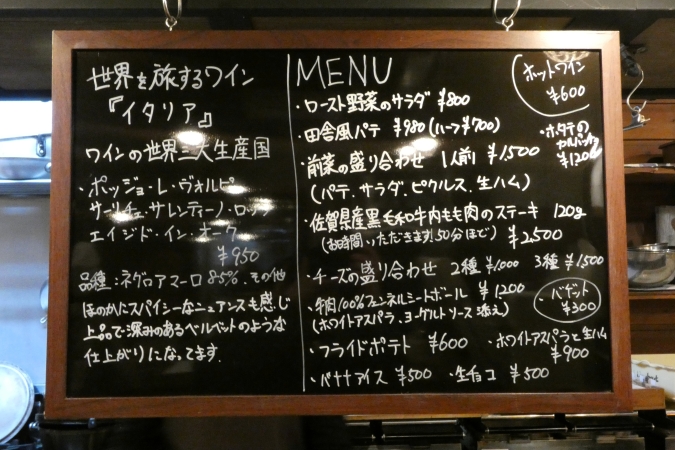 世界を旅するワイン
『イタリア』
ワインの世界三大生産国
・ポッジョ・レ・ヴォルピ
サーリチェ・サレンティーノ・ロッソ
エイジド・イン・オーク
¥950
品種:ネグロアマーロ 85%、その他
ほのかにスパイシーなニュアンスも感じ
上品で深みのあるベルベットのような
仕上がりになってます。
MENU
ホットワイン
¥600
・ロースト野菜のサラダ ¥800
・田舎風パテ ¥980(ハーフ¥700)
・ホタテの
カルパッチョ
¥1200
・前菜の盛り合わせ 1人前 ¥1,500
(パテ、サラダ、ピクルス、生ハム)
・佐賀県産黒毛和牛内もも肉のステーキ 120g
(お時間いただきます!50分ほど) ¥2,500
・チーズの盛り合わせ 2種 ¥1,000 3種 ¥1,500
・牛肉100%フェンネルミートボール ¥1,200
(ホワイトアスパラ、ヨーグルトソース添え)
・バゲット
¥300
・フライドポテト ¥600
・ホワイトアスパラと生ハム
¥900
・バナナアイス ¥500 ・生チョコ ¥500